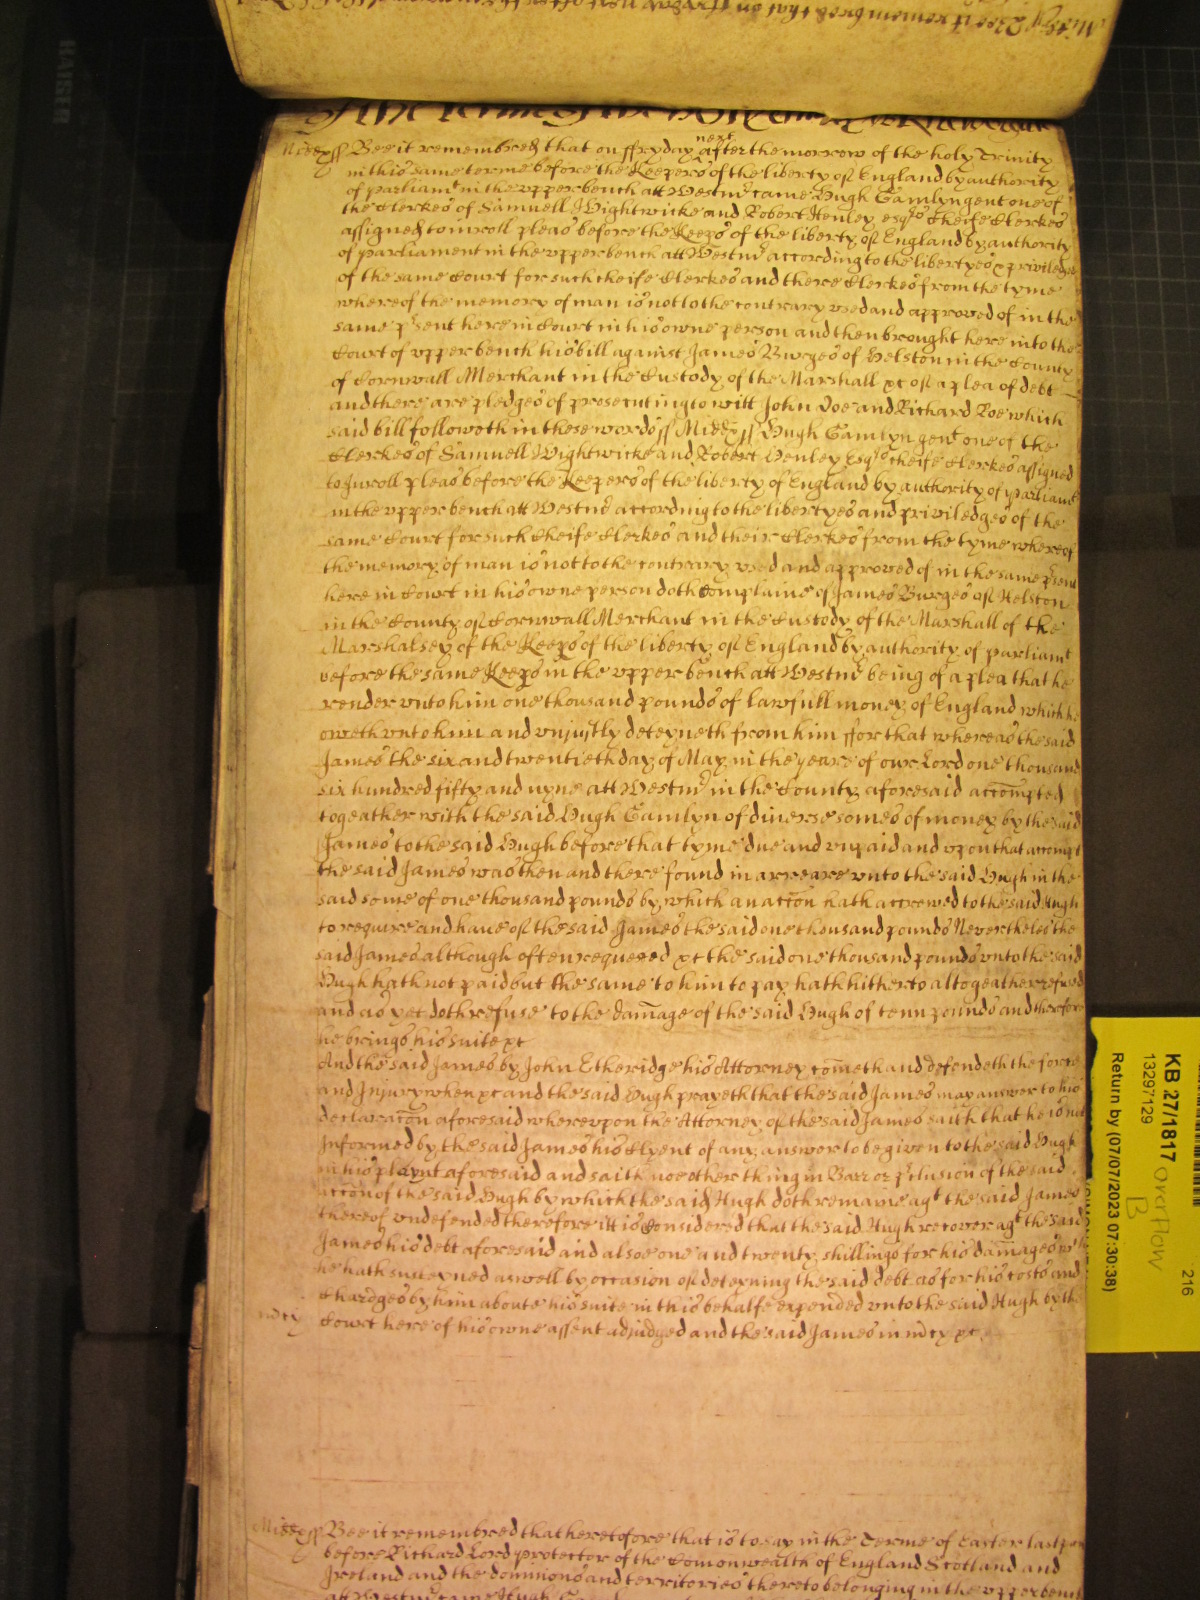 Midd ss Bee it remembred that on ffryday next after the morrow of the holy Trinity
in this same terme before the Keepers of the liberty of England by authority
of parliamt in the upper bench att Westmr came Hugh Gamlyn gent one of
the Clerkes of Samuell Wightwicke and Robert Henley esqrs Cheife Clerkes
assigned to inroll pleas before the Keeps of the liberty of England by authority
of parliament in the upper bench att Westmr according to the libertyes & priviledges
of the same Court for such cheife Clerkes and there Clerkes from the tyme
whereof the memory of man is not to the contrary used and approved of in the
same psent here in Court in his owne person and then brought here into the
Court of upper bench his bill against James Burges of Helston in the County
of Cornwall Merchant in the Custody of the Marshall &c of a plea of debt
and there are pledges of prosecuting to witt John Doe and Richard Roe which
said bill followeth in these words ss Midd ss Hugh Gamlyn gent one of the
Clerkes of Samuell Wightwicke and Robert Henley Esqrs cheife Clerkes assigned
to Inroll pleas before the Keepers of the liberty of England by authority of parliamt
in the upper bench att Westmr according to the libertyes and priviledges of the
same Court for such Cheife Clerkes and their Clerkes from the tyme whereof
the memory of man is not to the contrary used and approved of in the same psent
here in Court in his owne person doth Complaine of James Burges of Helston
in the County of Cornwall Merchant in the Custody of the Marshall of the
Marshalsey of the Keeps of the liberty of England by authority of parliamt
before the same Keeps in the upper bench att Westmr being of a plea that he
render unto him one thousand pounds of lawfull money of England which he
oweth unto him and unjustly deteyneth from him ffor that whereas the said
James the six and twentieth day of May in the yeare of our Lord one thousand
six hundred fifty and nyne att Westmr in the County aforesaid accompted
togeather with the said Hugh Gamlyn of diverse somes of money by the said
James to the said Hugh before that tyme due and unpaid and upon that accompt
the said James was then and there found in arreare unto the said Hugh in the
said some of one thousand pounds by which an accon hath accrewed to the said Hugh
to require and have of the said James the said one thousand pounds Nevertheles the
said James although often requered &c the said one thousand pounds unto the said
Hugh hath not paid but the same to him to pay hath hitherto altogeather refused
and as yet doth refuse to the damage of the said Hugh of tenn pounds and therefore
he brings his suite &c
And the said James by John Etheridge his Attorney cometh and defendeth the force
and Injury when &c and the said Hugh prayeth that the said James may answer to his
declaracon aforesaid whereupon the Attorney of the said James saith that he is not
Informed by the said James his Clyent of any answer to be given to the said Hugh
in his playnt aforesaid and saith noe other thing in Barr or pclusion of the said
accon of the said Hugh by which the said Hugh doth remaine agt the said James
thereof undefended therefore itt is Considered that the said Hugh recover agt the said
James his debt aforesaid and alsoe one and twenty shillings for his damages wch
he hath susteyned aswell by occasion of deteyning the said debt as for his costs and
Chardges by him about his suite in this behalfe expended unto the said Hugh by the
mcy Court here of his owne assent adjudged and the said James in mcy &c
Midd ss Bee it remembred that heretofore that is to say in the Terme of Easter last
before Richard Lord protector of the Comonwealth of England Scotland and
Ireland and the dominions and territories thereto belonging in the upper bench
att Westmr came Hugh
KB 27/1817
13297129
Return by (07/07/2023 07:30:38)
216
Overflow
B
HAISER